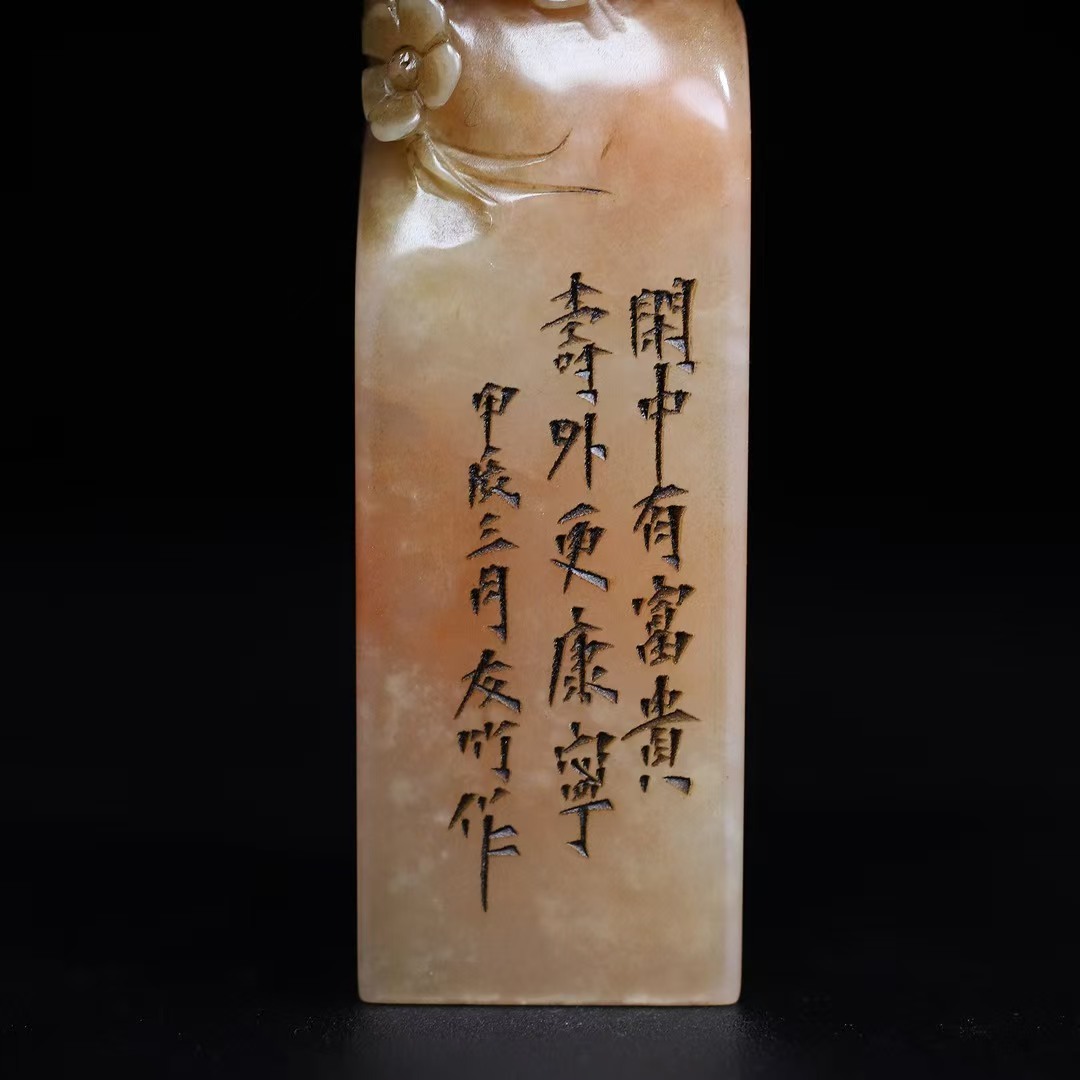 閑中有富貴
壽外更康寧
甲辰三月友竹作